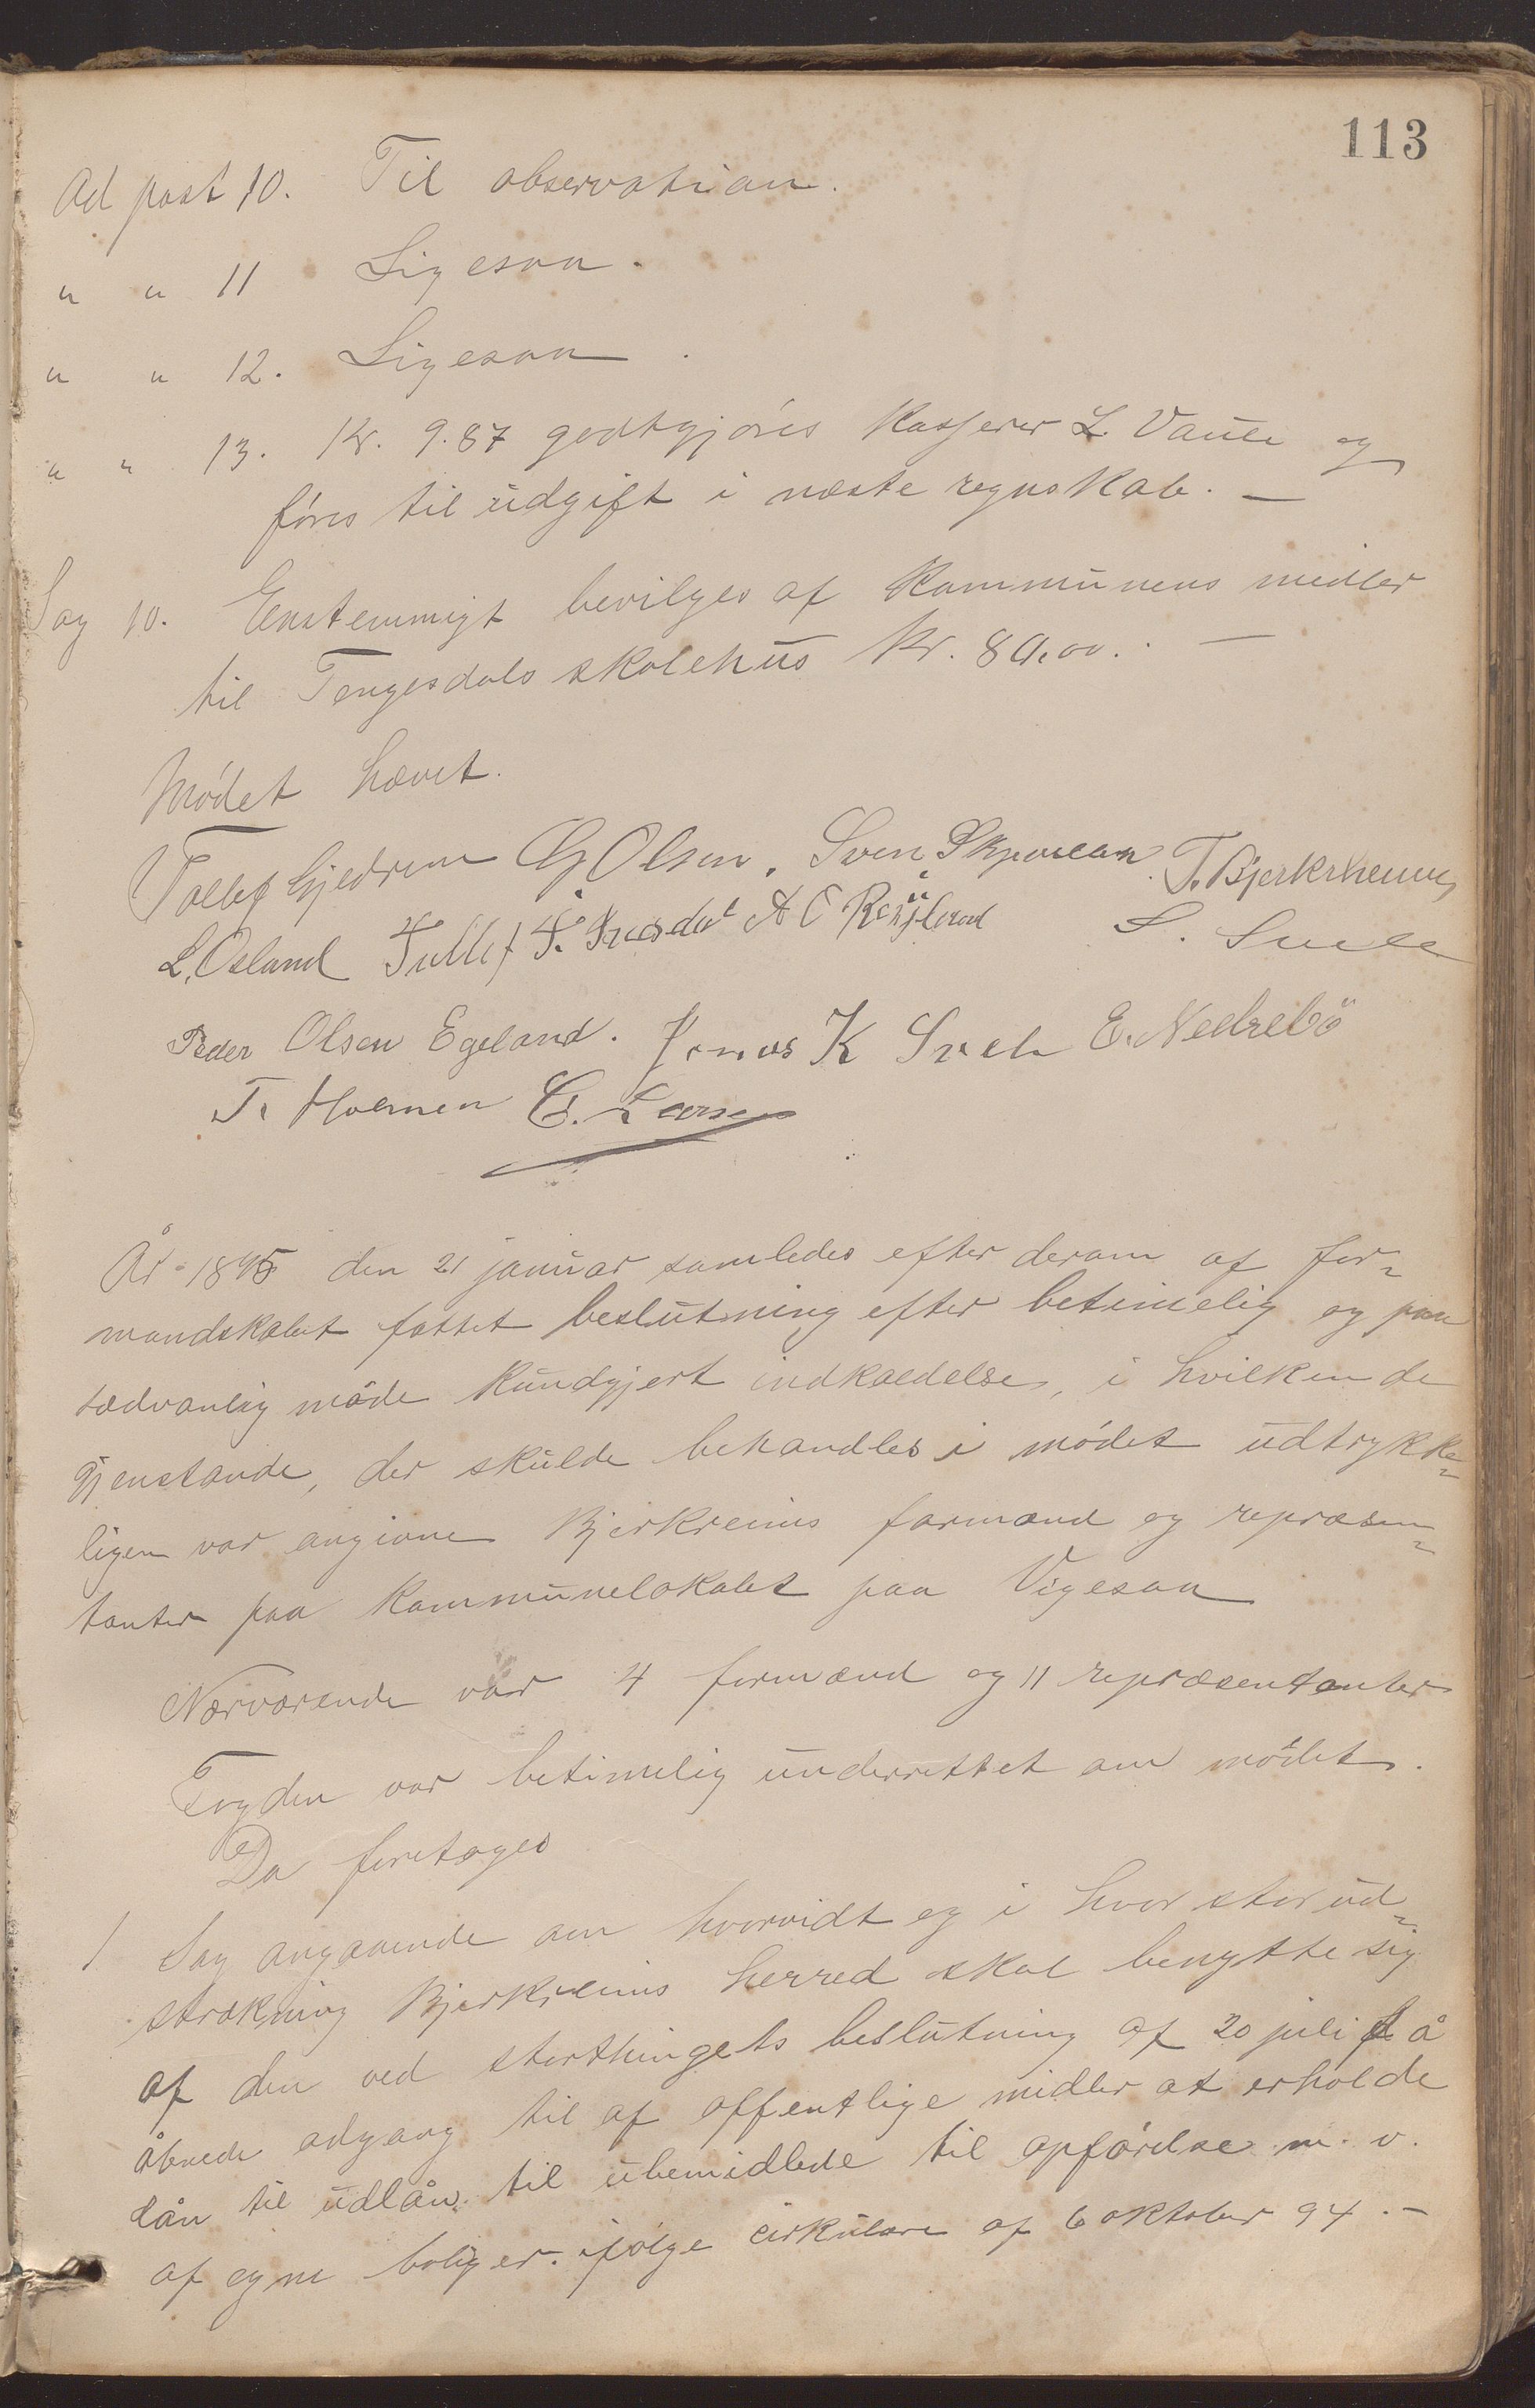 113
Ad post 10. Til observation.
" " 11 Ligesaa.
" " 12. Ligesaa.
" " 13. Kr. 9.87 godtgjöres Kasserer L. Vaule og
föres til udgift i næste regnskab. —
Sag 10. Enstemmigt bevilges af Kommunens midler
til Tengesdals skolehus Kr. 80,00. —
Mödet hævet.
Tollef Gjedrem Olsen. Sven T. Bjerkrheim
L. Osland Tollef T. A E
Peder Olsen Egeland. Jonas K E. Nedrebö
T. Holmen
År 1895 den 21 januar samledes efter derom af for-
mandskabet fattet beslutning efter betimelig og paa
sædvanlig måde kundgjort indkaldelse, i hvilken de
gjenstande, der skulde behandles i mödet udtrykke-
ligen var angivne Bjerkreims formænd og repræsen-
tanter paa Kommunelokalet paa Vigesaa
Nærværende var 4 formænd og 11 repræsentanter
Fogden var betimelig underrettet om mödet.
Da foretoges
1 Sag angaaende om hvorvidt og i hvor stor ud-
strækning Bjerkreims herred skal benytte sig
af den ved storthingets beslutning af 20 juli f å
åbnede adgang til af offentlige midler at erholde
lån til udlån til ubemidlede til opförelse m. v.
af egne boliger. ifölge cirkulære af 6 oktober 94. —